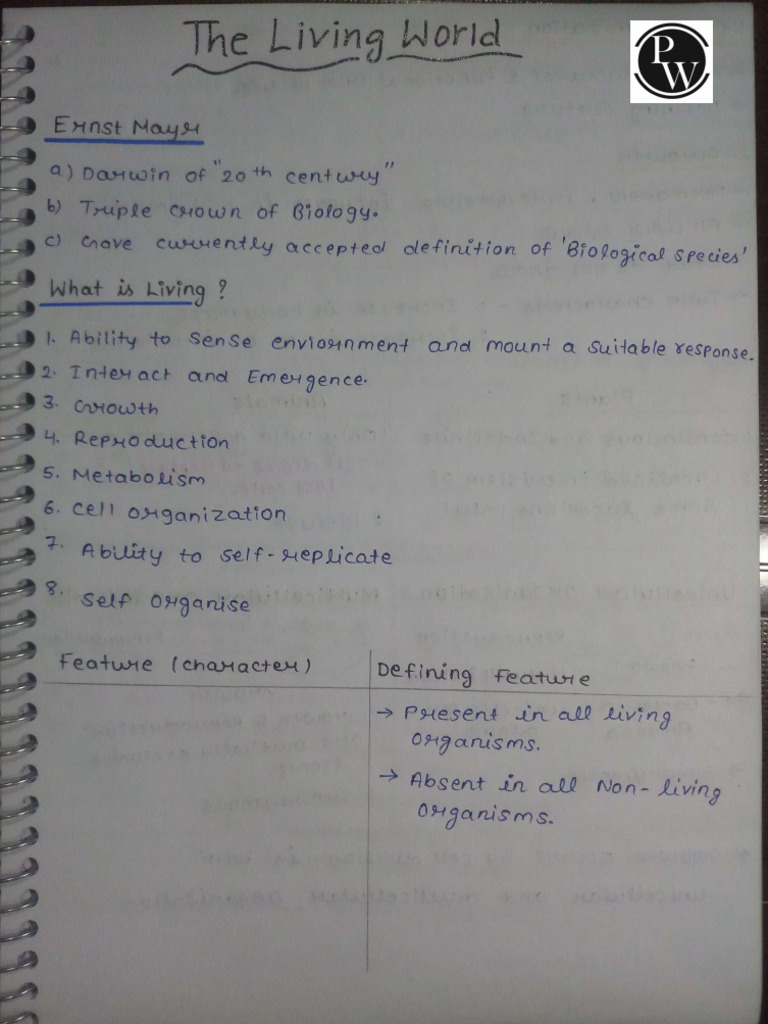 The Living World
PW
Ernst Mayr
a) Darwin of "20th century"
b) Triple crown of Biology.
c) Gave currently accepted definition of 'Biological species'
What is Living ?
1. Ability to sense enviornment and mount a suitable response.
2. Interact and Emergence.
3. Growth
4. Reproduction
5. Metabolism
6. Cell organization
7. Ability to self-replicate
8. Self organise
Feature (character)
Defining feature
→ Present in all living
organisms.
→ Absent in all Non-living
organisms.